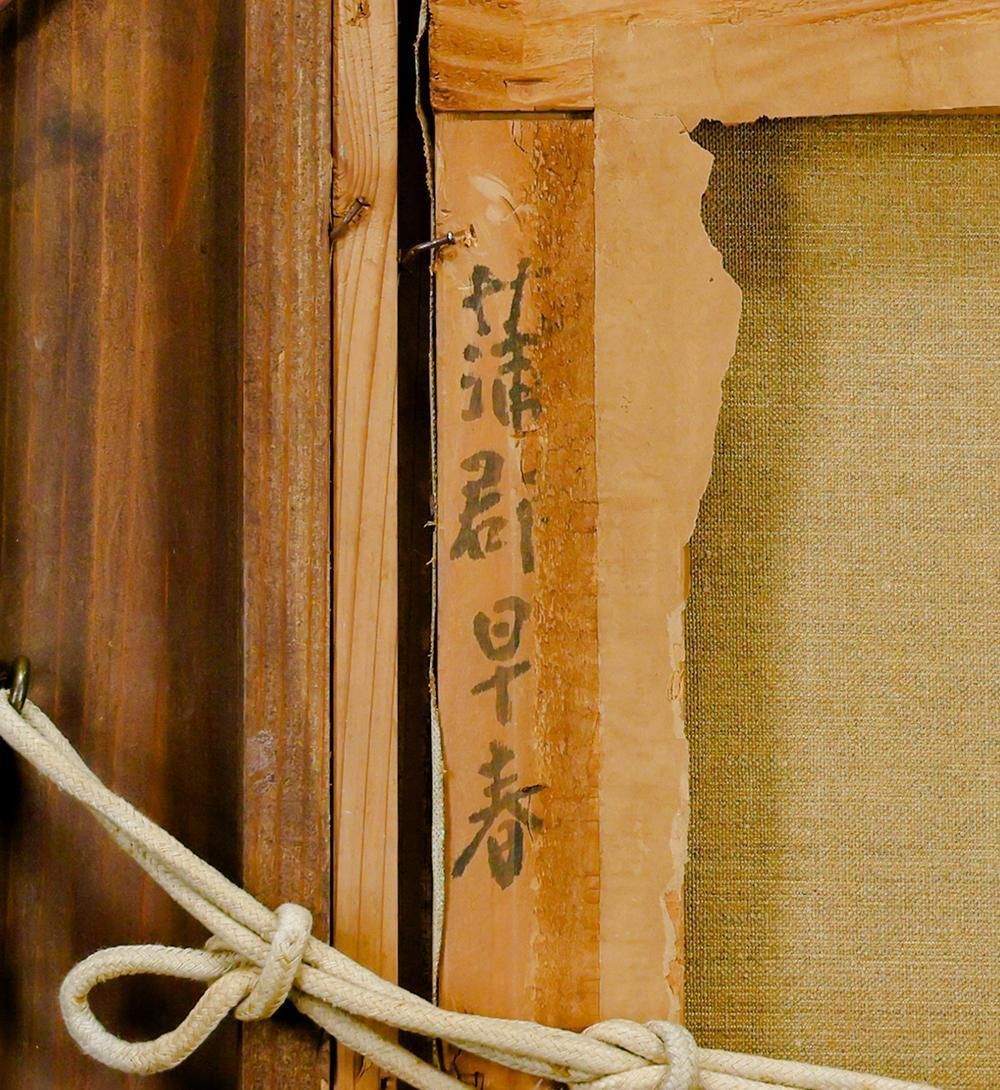 蒲郡早春